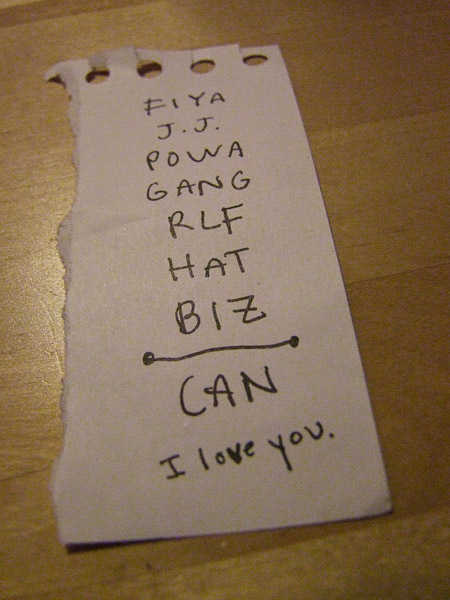 FIYA
J.J.
POWA
GANG
RLF
HAT
BIZ
CAN
I love you.